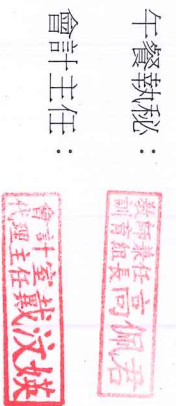 午餐執秘：
教師兼任
訓育組長高佩君
會計主任：
會計室
代理主任戴汶媖